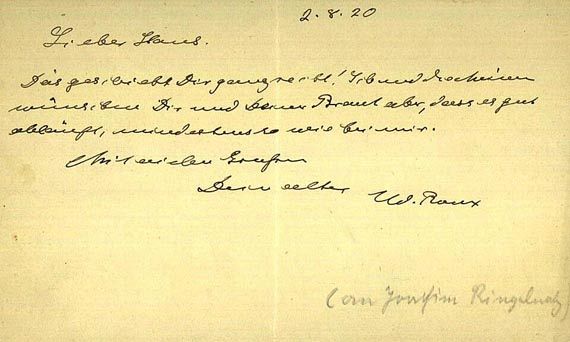 2.8.20
Lieber Hans.
Das geschieht Dir ganz recht! Ich und
wünschen Dir und Deiner Braut aber, dass es gut
abläuft, mindestens so wie bei mir.
Mit vielen Grüßen
Dein alter
W. Roux
(an Joachim Ringelnatz)